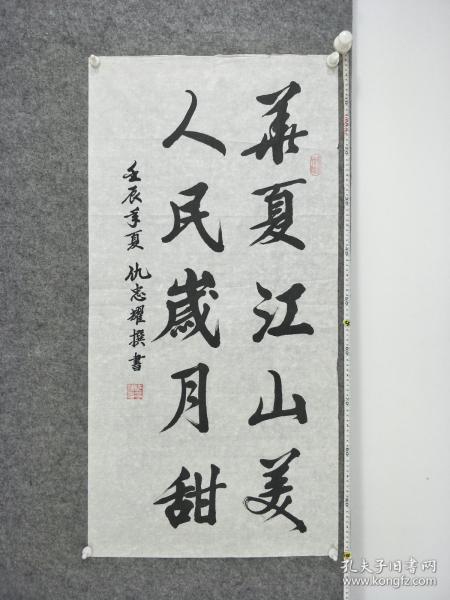 華夏江山美
人民歲月甜
壬辰年夏 仇志耀撰書
孔夫子旧书网
www.kongfz.com